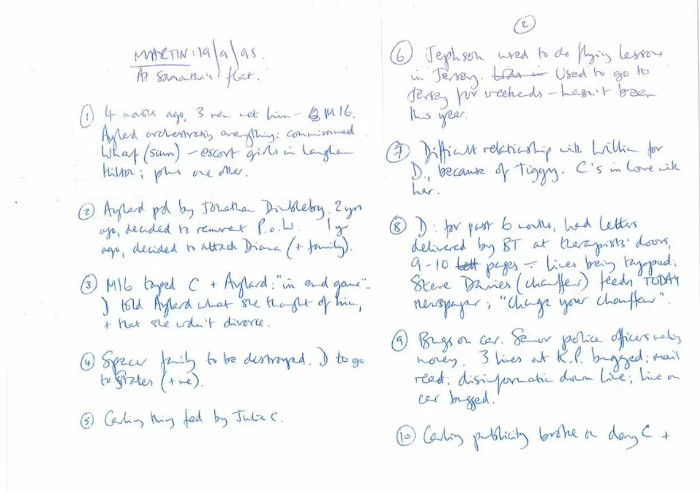 MARTIN: 19/9/95
At Samantha's flat.
① 4 months ago, 3 men met him – MI6.
Aylard orchestrating everything: commissioned
Wharf (Sun) – escort girls in Langham
Hilton; plus one other.
② Aylard pd by Jonathan Dimbleby. 2 yrs
ago, decided to reinvent P.o.W. 1 yr
ago, decided to attack Diana (+ family).
③ MI6 taped C + Aylard: "in end game".
D told Aylard what she thought of him,
+ that she wdn't divorce.
④ Spencer family to be destroyed. D to go
to States (+ve).
⑤ Carling thing fed by Julia C.
②
⑥ Jephson used to do flying lessons
in Jersey. Used to go to
Jersey for weekends – hasn't been
this year.
⑦ Difficult relationship with William for
D., because of Tiggy. C's in love with
her.
⑧ D: for past 6 months, had letters
delivered by BT at therapists' doors,
9-10 pages – lines being tapped:
Steve Davies (chauffeur) feeds TODAY
newspaper; "change your chauffeur".
⑨ Bugs on car. Senior police officers making
money. 3 lines at K.P. bugged; mail
read: disinformation down line; line on
car bugged.
⑩ Carling publicity broke on day C +